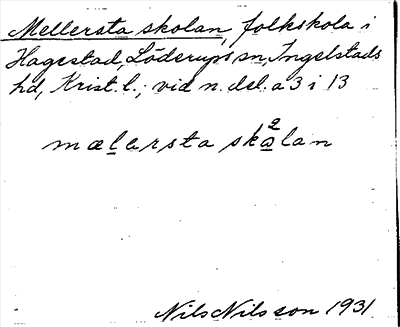 Mellersta skolan, folkskola i
Hagestad, Löderups sn, Ingelstads
hd, Krist. l.; vid n. del. a 3 i 13
mælersta skɷ²lan
Nils Nilsson 1931